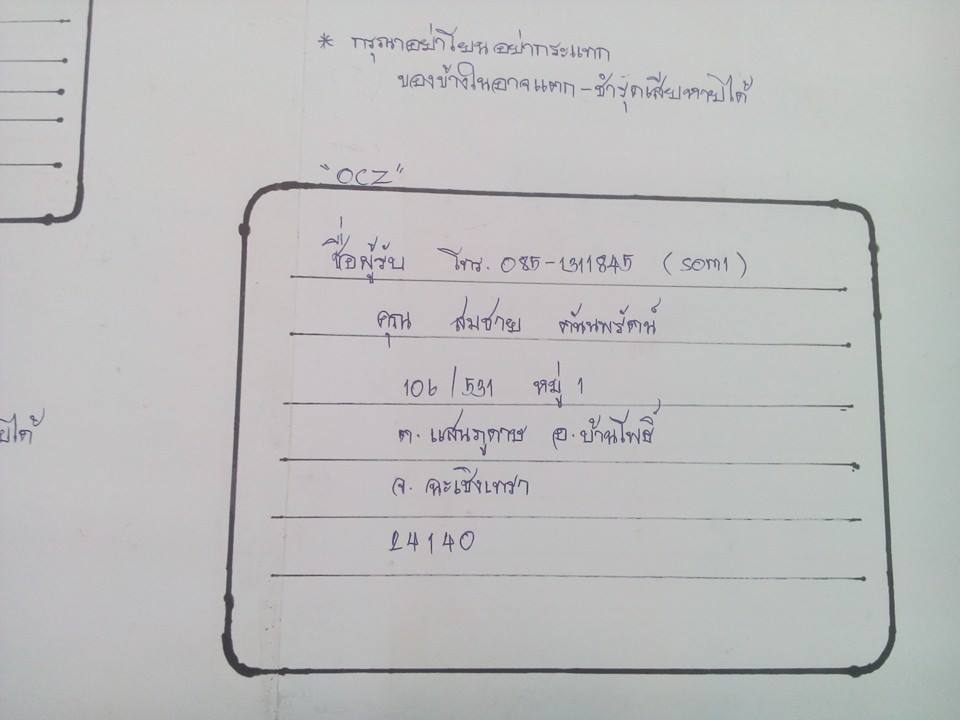 * กรุณาอย่าโยนอย่ากระแทก
ของข้างในอาจแตก-ชำรุดเสียหายได้
"OCZ"
ชื่อผู้รับ โทร. 085-1311845 (som1)
คุณ สมชาย ตันนพรัตน์
106/531 หมู่ 1
ต. แสนภูดาษ อ. บ้านโพธิ์
จ. ฉะเชิงเทรา
24140
ยได้